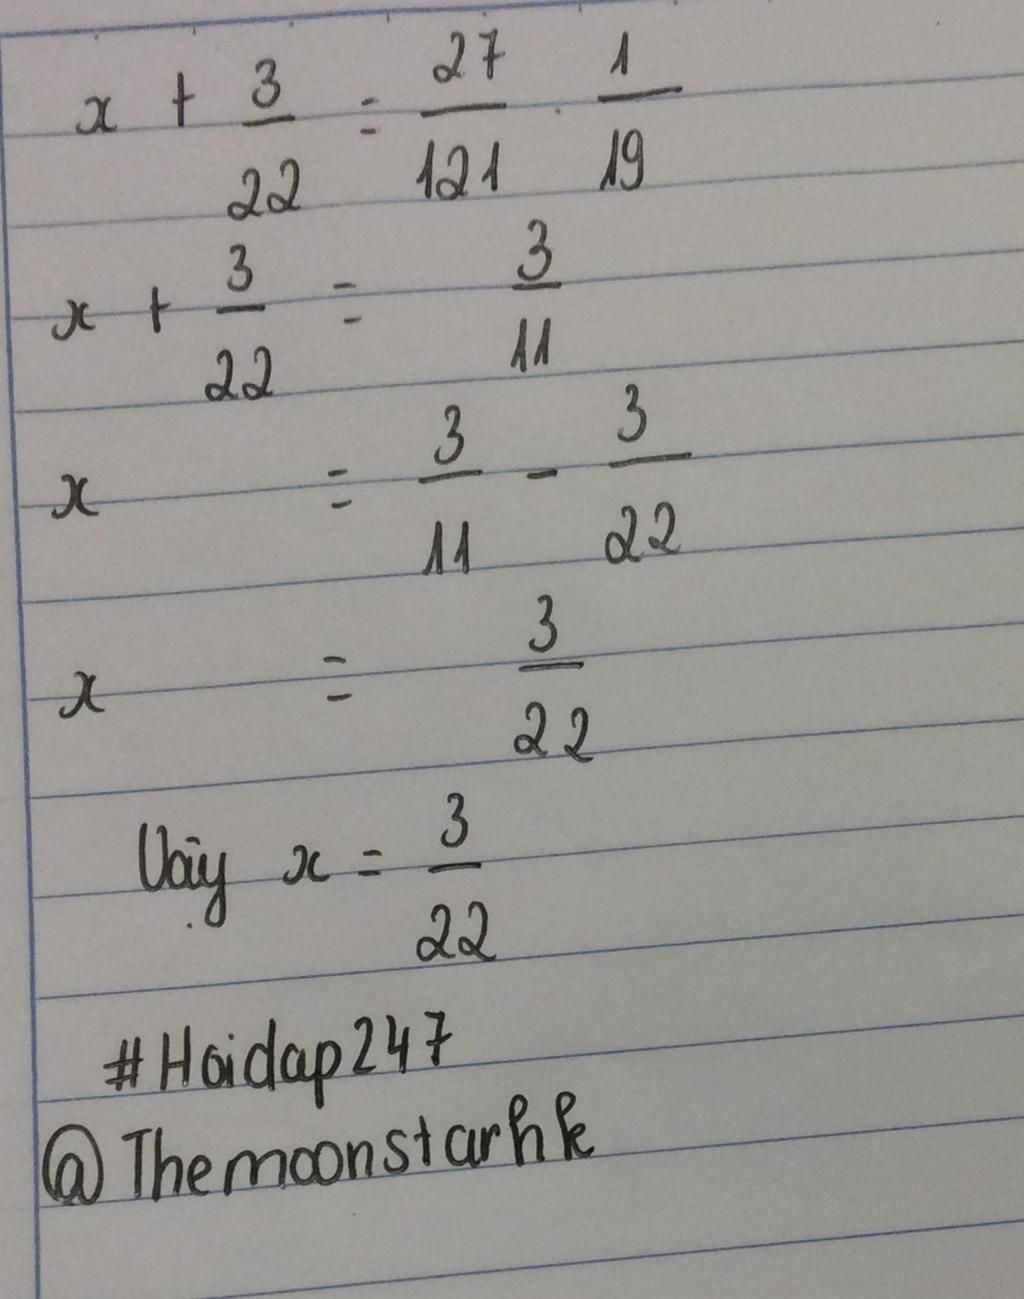 x + 3/22 = 27/121 . 1/19
x + 3/22 = 3/11
x = 3/11 - 3/22
x = 3/22
Vậy x = 3/22
#Hoidap247
@Themoonstarhk